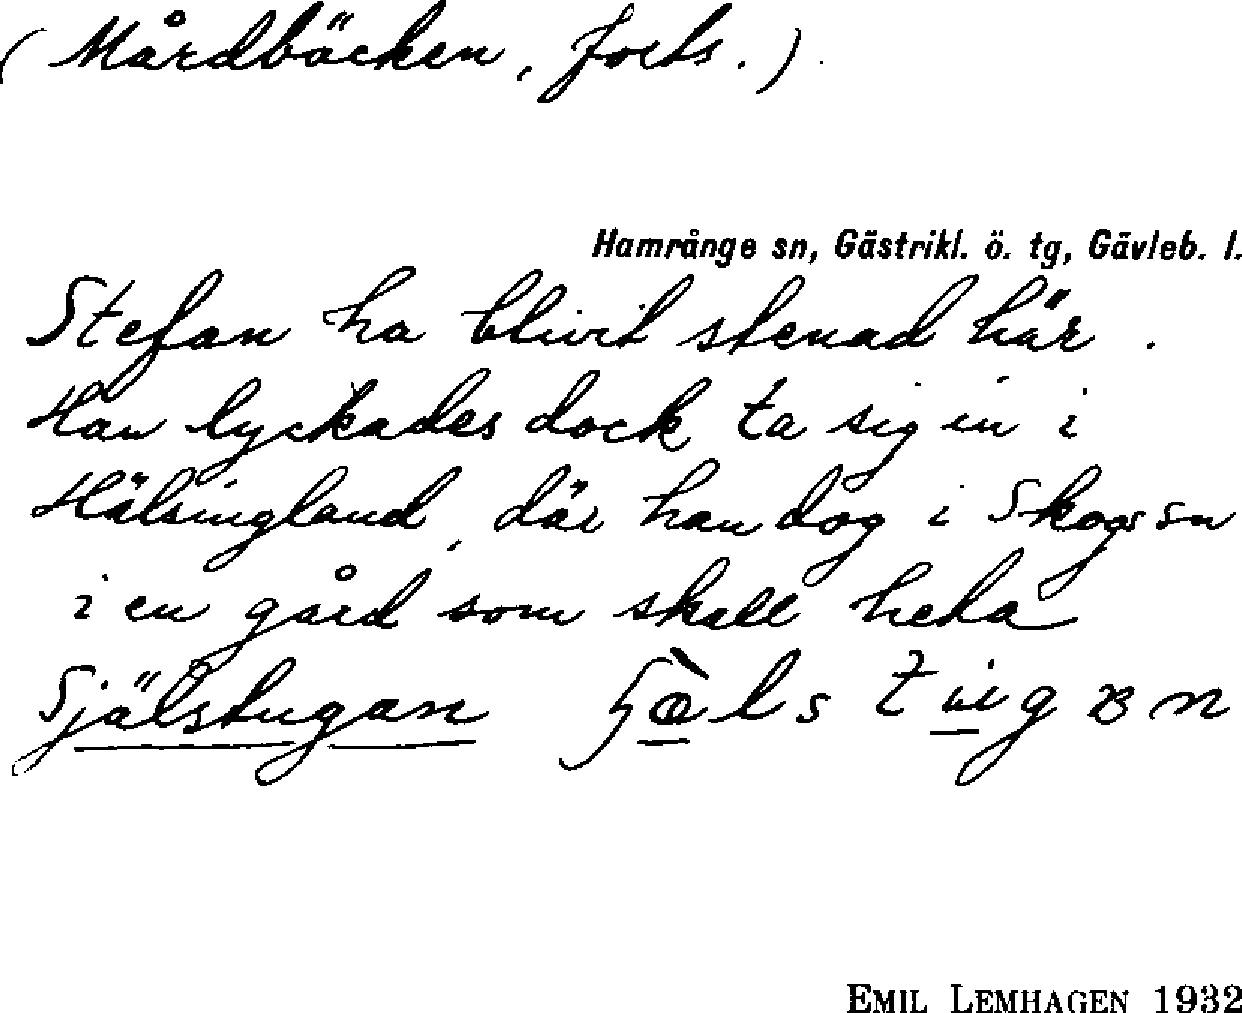 (Mårdbäcken, forts.)
Hamrånge sn, Gästrikl. ö. tg, Gävleb. l.
Stefan ha blivit stenad här.
Han lyckades dock ta sig in i
Hälsingland, där han dog i Skogs sn
i en gård som skall heta
Själstugan
EMIL LEMHAGEN 1932